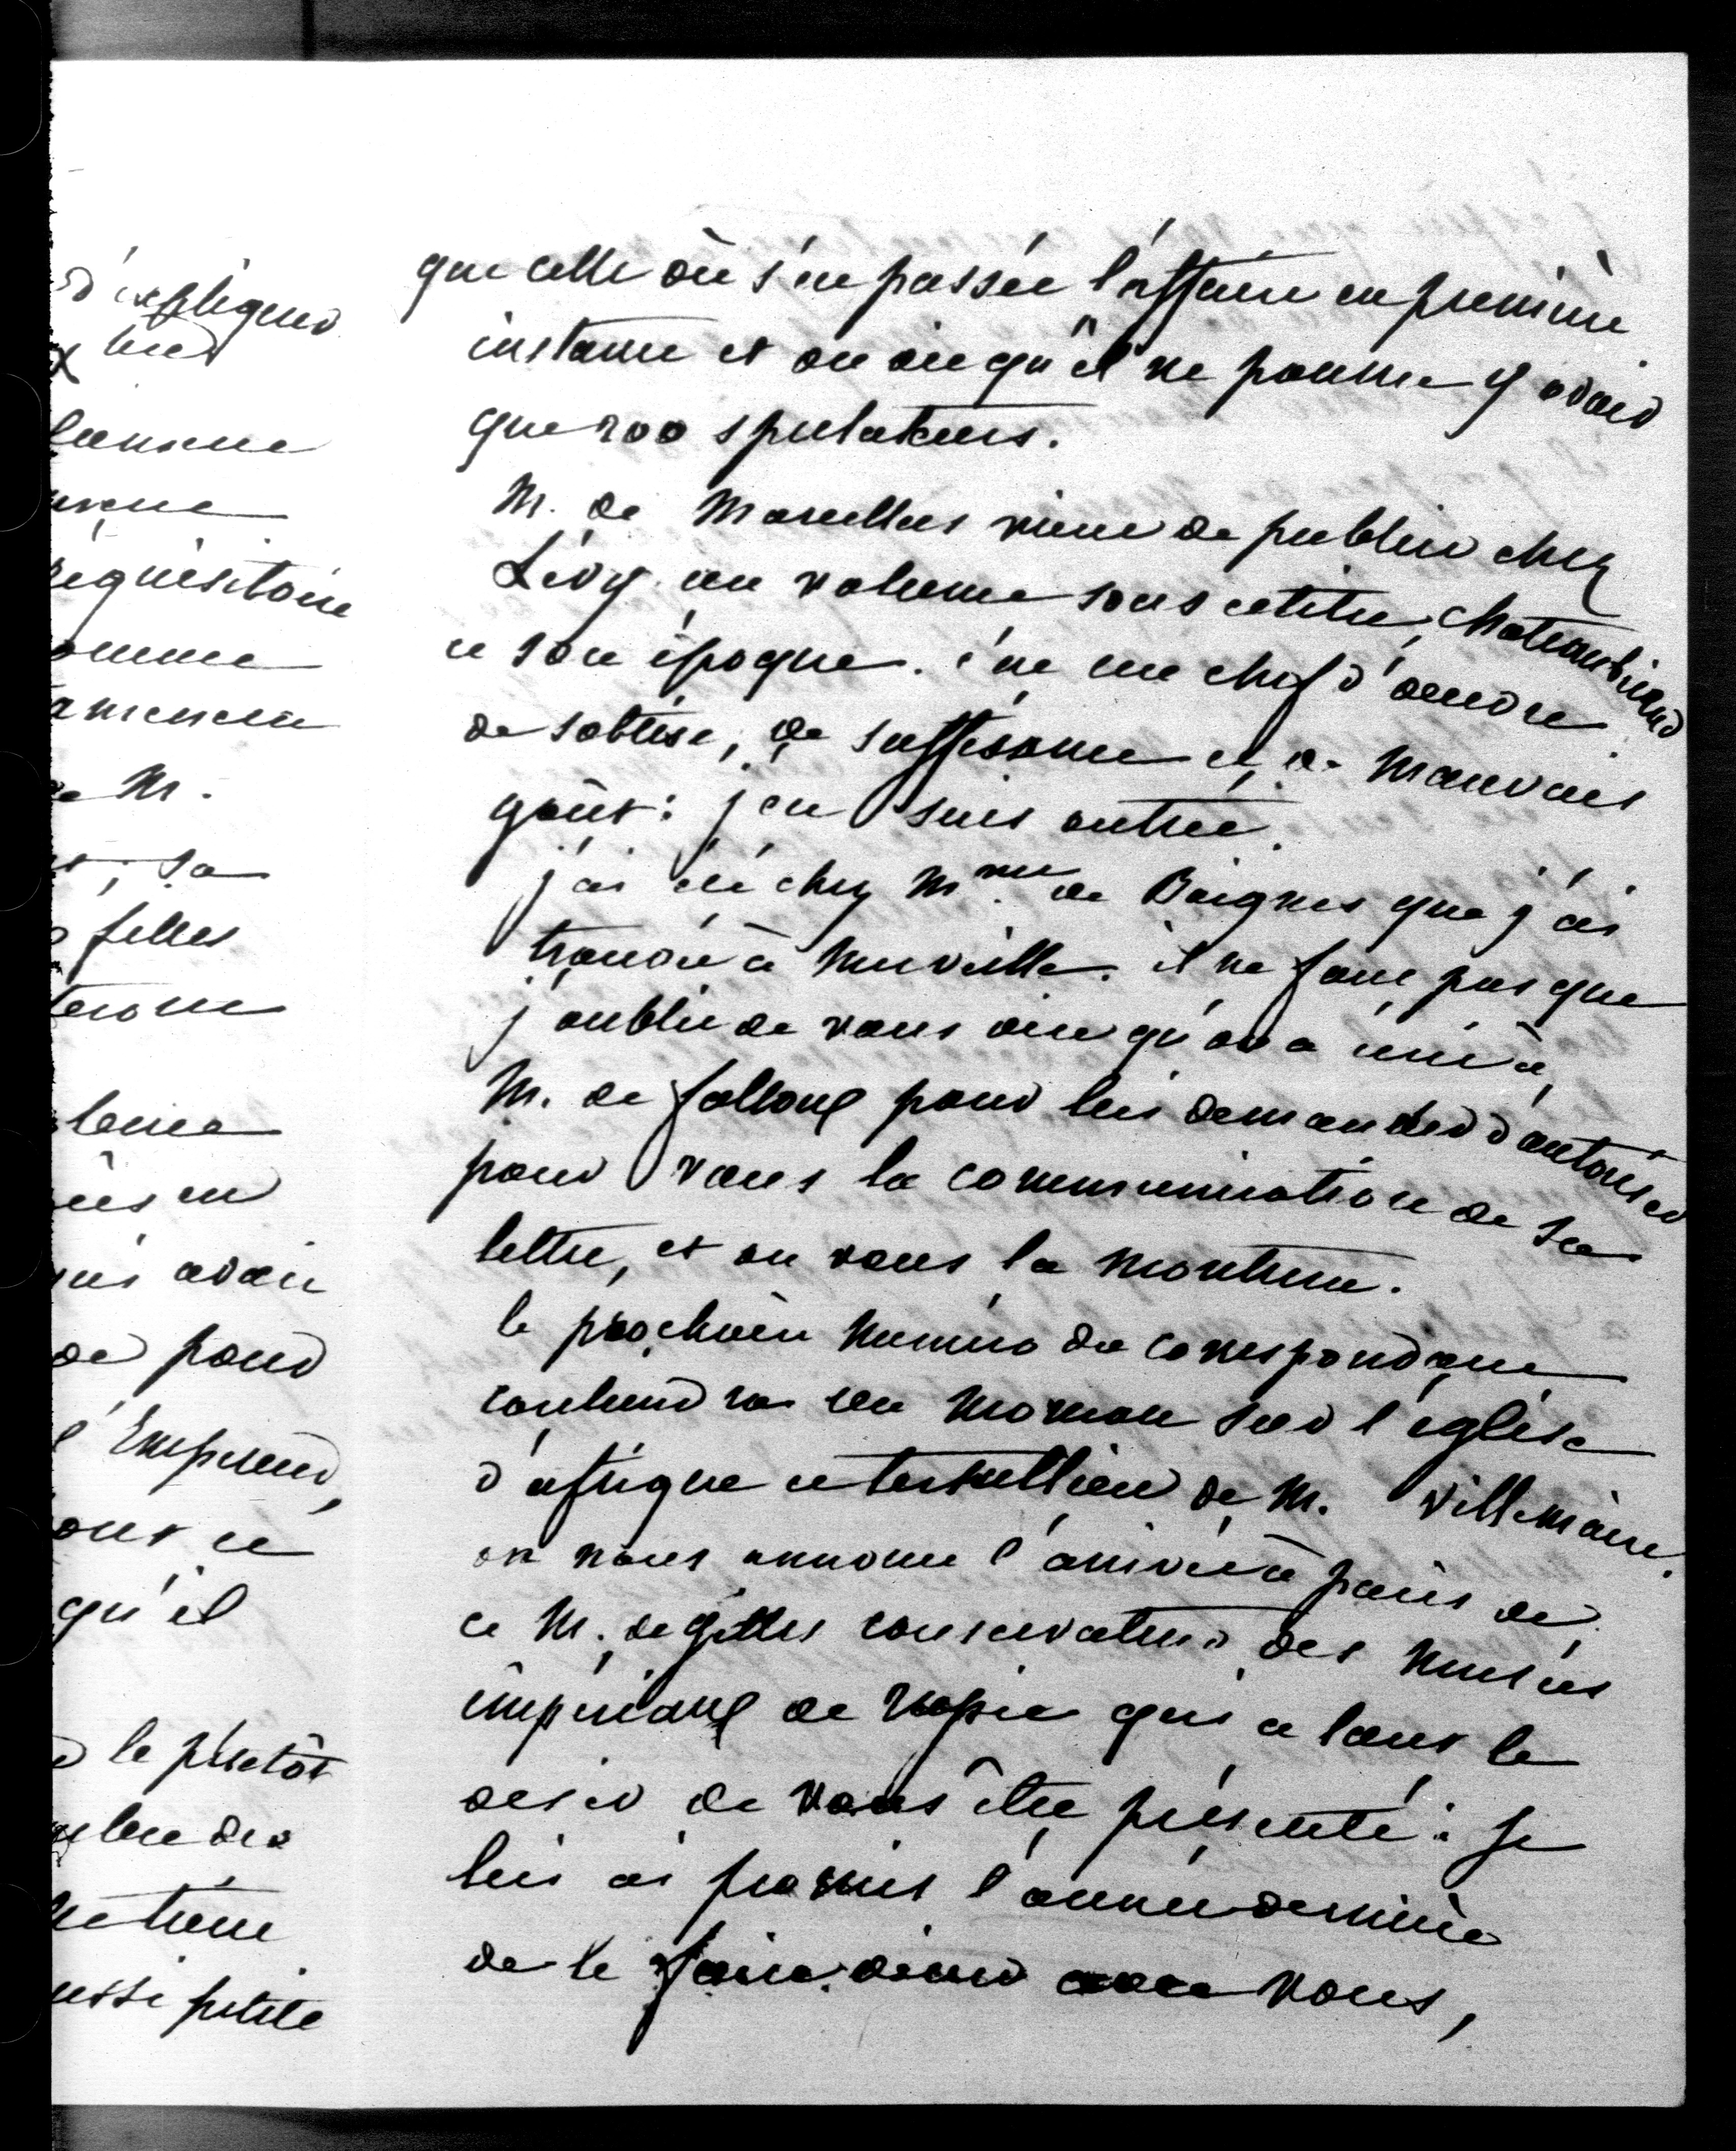 d'expliquer
que celle où s'est passée l'affaire en première
instance et on dit qu'il ne pourra y avoir
que 200 spectateurs.
M. de Marcellus vient de publier chez
Lévy un volume sous ce titre, Chateaubriand
et son époque. c'est un chef d'œuvre
de sottise, de suffisance et de mauvais
goût: j'en suis outrée.
j'ai été chez Mme de Boignes que j'ai
trouvée à merveille. il ne faut pas que
j'oublie de vous dire qu'on a écrit à
M. de falloux pour lui demander d'autoriser
pour vous la communication de sa
lettre, et on vous la montrera.
le prochain numéro du correspondant
contiendra un morceau sur l'église
d'afrique et tertullien de M. Villemain.
on nous annonce l'arrivée à paris de
ce M. de gilles conservateur des musées
impériaux de russie qui a tant le
désir de vous être présenté: je
lui ai promis l'année dernière
de le faire diner avec vous,
réquisitoire
de M.
; sa
filles
avait
de pour
l'Empereur,
qu'il
le plutôt
petite